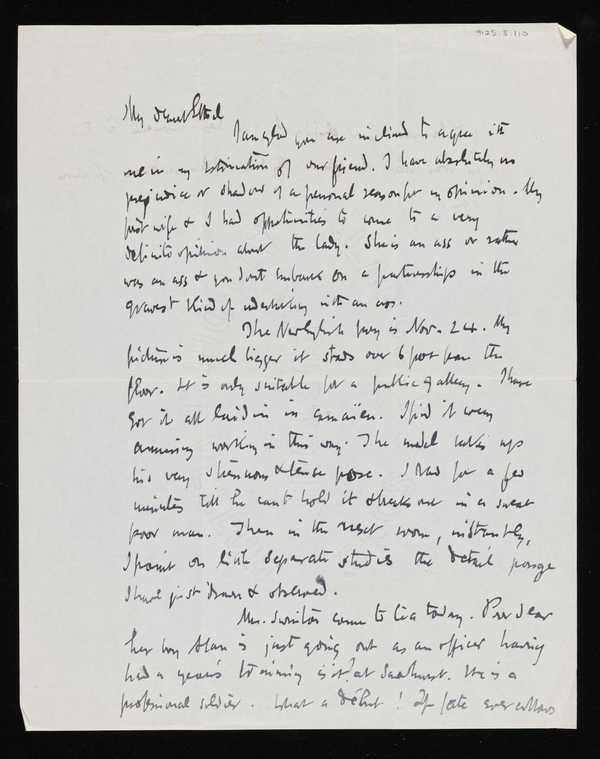 9125.5.110
My dearest Ethel
I am glad you are inclined to agree with
me in my estimation of our friend. I have absolutely no
prejudice or shadow of a personal reason for my opinion. My
first wife & I had opportunities to come to a very
definite opinion about the lady. She is an ass or rather
was an ass & you don't embark on a partnership in the
gravest kind of undertaking with an ass.
The New English jury is Nov. 24. My
picture is much bigger it stands over 6 foot from the
floor. It is only suitable for a public gallery. I have
got it all laid in in camaïeu. I find it very
amusing working in this way. The model takes up
his very strenuous & tense pose. I draw for a few
minutes till he cant hold it & breaks out in a sweat
poor man. Then in the next room, instantly,
I paint on little separate studies the detail passage
I have just drawn & observed.
Mrs. Swinton came to tea today. Poor dear
her boy Alan is just going out as an officer having
had a year's training is it? at Sandhurst. He is a
professional soldier. What a début! If fate ever allows